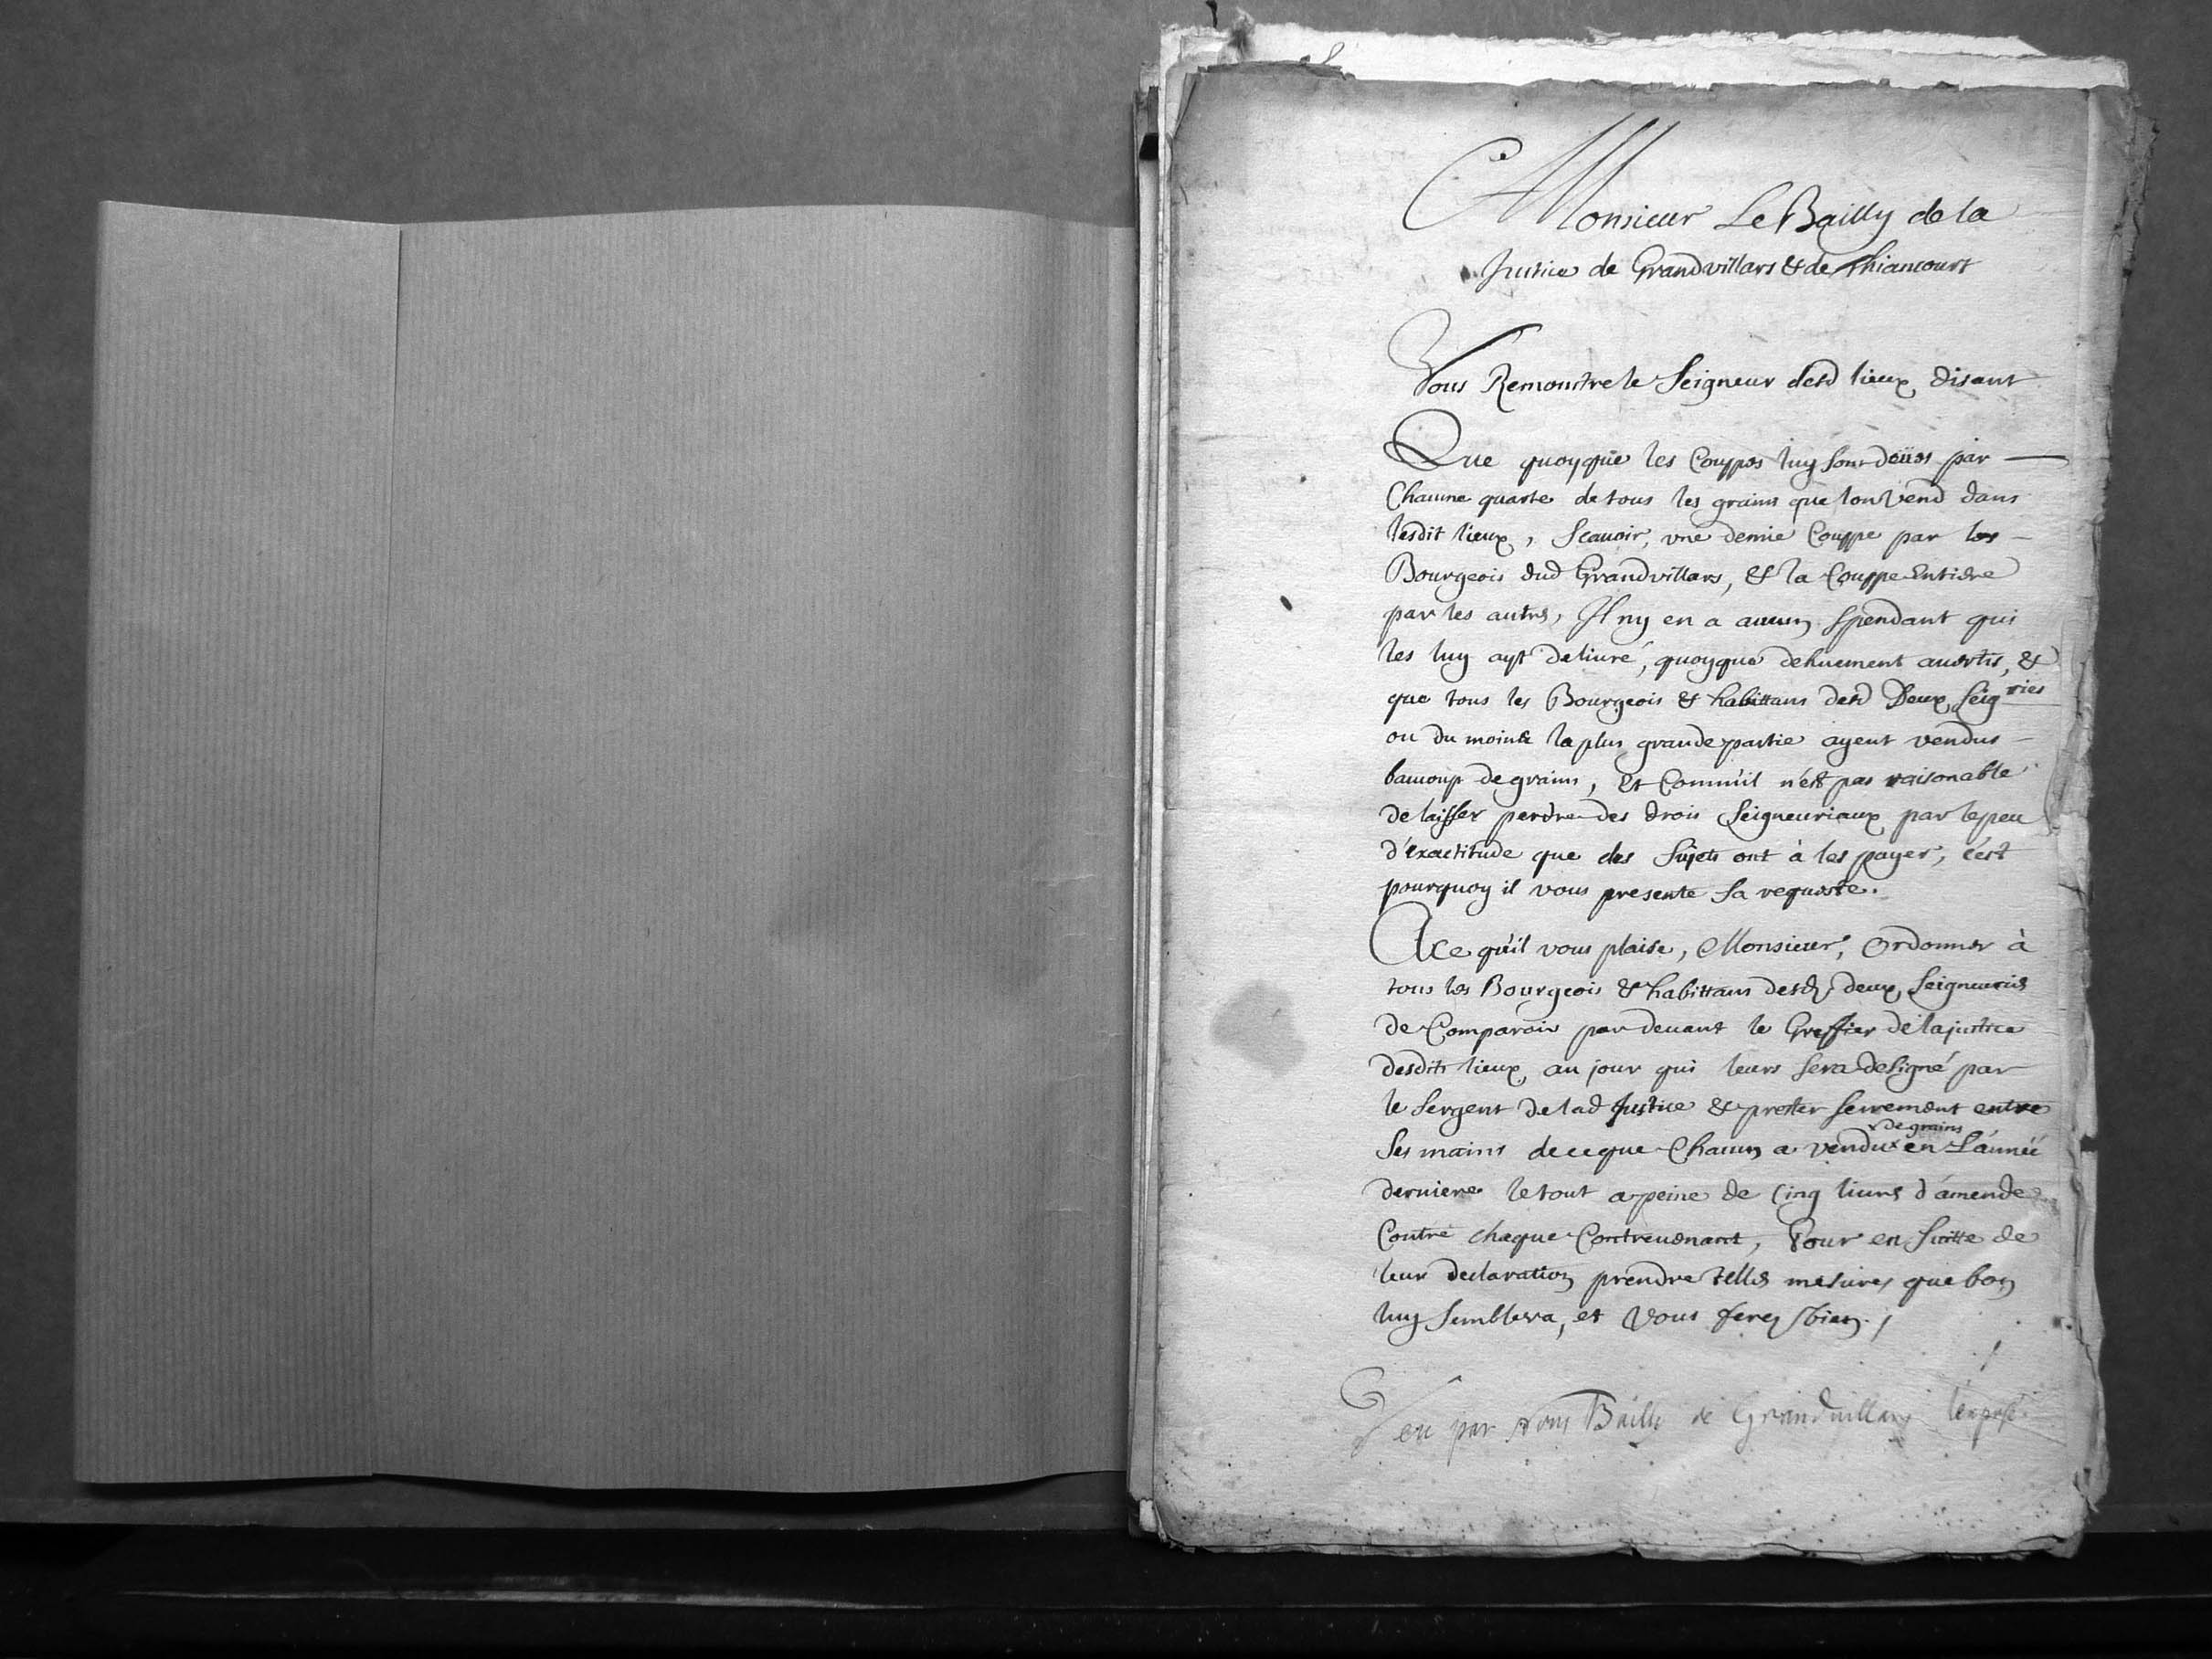 A Monsieur Le Bailly de la
Justice de Grandvillars & de Thiancourt
Vous Remonstre le Seigneur desd lieux disant
Que quoyque les Couppes luy sont deües par
Chacune quarte de tous les grains que lon vend dans
lesdit lieux, Scauoir, vne demie Couppe par les
Bourgeois dud Grandvillars, & la Couppe Entiere
par les autres, Il ny en a aucun Cependant qui
les luy ayt deliuré, quoyque dehuement auertis, &
que tous les Bourgeois & habittans desd Deux Seigries
ou du moins la plus grande partie ayent vendus
baucoup de grains, Et Comm'il n'est pas raisonable
de laisser perdre des drois Seigneuriaux par le peu
d'exactitude que des Sujets ont à les payer, c'est
pourquoy il vous presente sa requeste.
A Ce qu'il vous plaise, Monsieur, Ordonner à
tous les Bourgeois & habittans desd deux Seigneuries
de Comparoir par deuant le Greffier de la justice
desdits lieux, au jour qui leurs sera designé par
le Sergent de lad Justice & prester serrement entre
Ses mains de ce que Chacun a vendu de grains en L'année
derniere le tout a peine de Cinq liures d'amende
Contre chaque Contreuenant, Pour en suitte de
leur declaration prendre telles mesures que bon
luy Semblera, et Vous ferez bien.
Veu par Nous Bailly de Grandvillars l'exposé